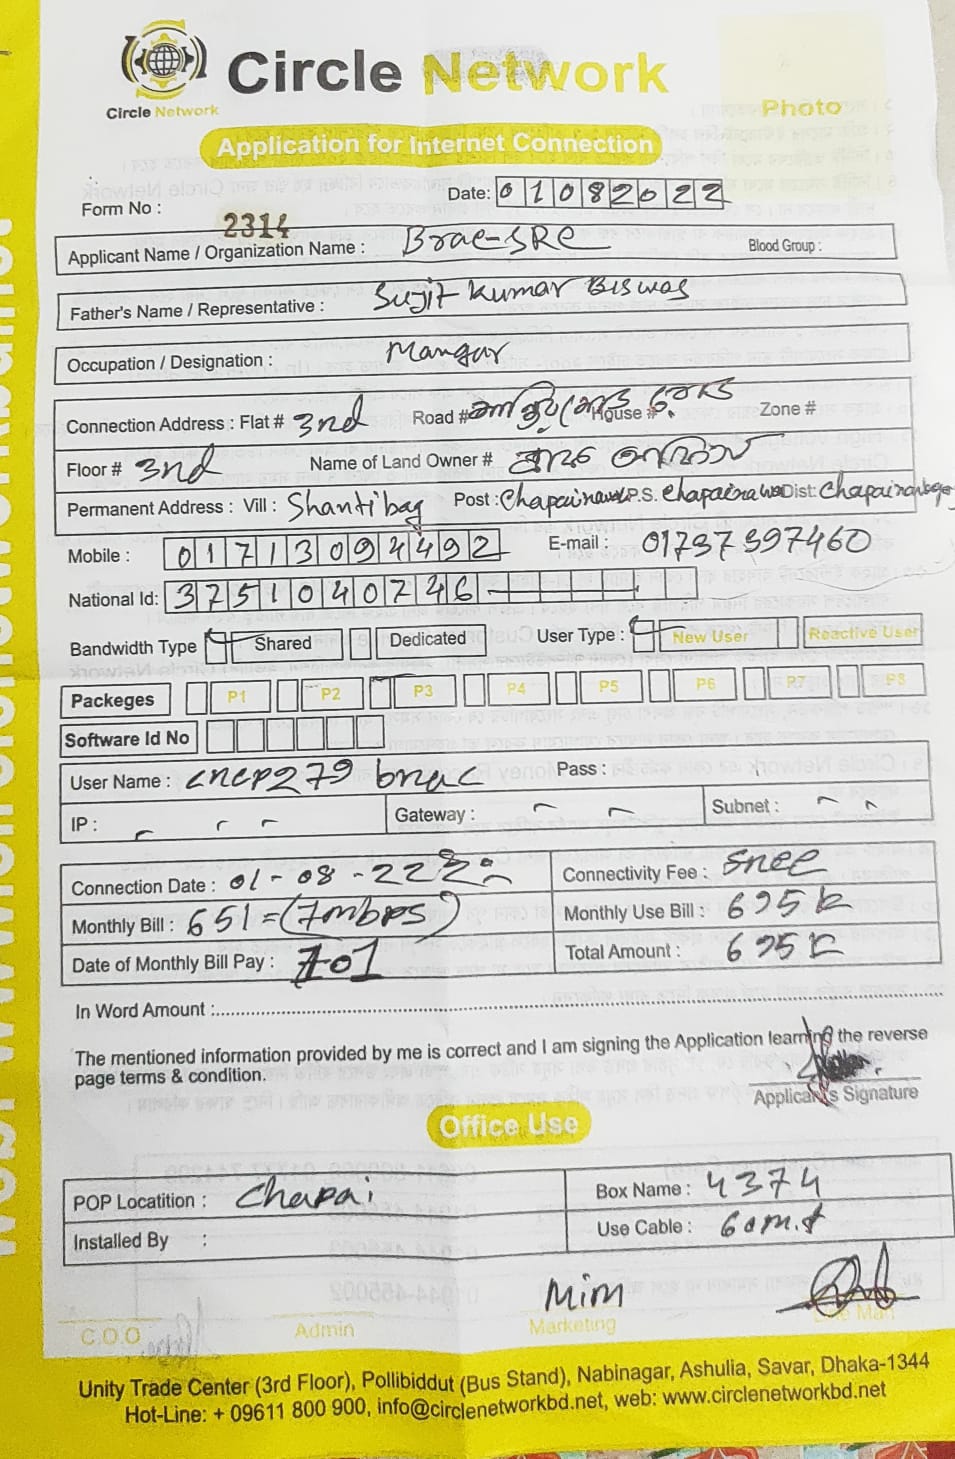 Circle Network
Circle Network
Photo
Application for Internet Connection
Form No : 2314
Date: 01082022
Applicant Name / Organization Name : Brac-SRC Blood Group :
Father's Name / Representative : Sujit Kumar Biswas
Occupation / Designation :
Connection Address : Flat # 3nd Road # House # Zone #
Floor # 3nd Name of Land Owner #
Permanent Address : Vill : Shantibag Post : P.S. Dist:
Mobile : 01713094492 E-mail : 01737397460
National Id: 3751040746
Bandwidth Type Shared Dedicated User Type : New User Reactive User
Packeges P1 P2 P3 P4 P5 P6 P7 P8
Software Id No
User Name : cncp279 brac Pass :
IP : Gateway : Subnet :
Connection Date : 01-08-22 Connectivity Fee :
Monthly Bill : 651=(7mbps) Monthly Use Bill :
Date of Monthly Bill Pay : Total Amount :
In Word Amount :
The mentioned information provided by me is correct and I am signing the Application learning the reverse
page terms & condition.
Applicant's Signature
Office Use
POP Locatition : Chapai Box Name : 4374
Installed By : Use Cable : 60m.t
Mim
C.O.O Admin Marketing Line Man
Unity Trade Center (3rd Floor), Pollibiddut (Bus Stand), Nabinagar, Ashulia, Savar, Dhaka-1344
Hot-Line: + 09611 800 900, info@circlenetworkbd.net, web: www.circlenetworkbd.net